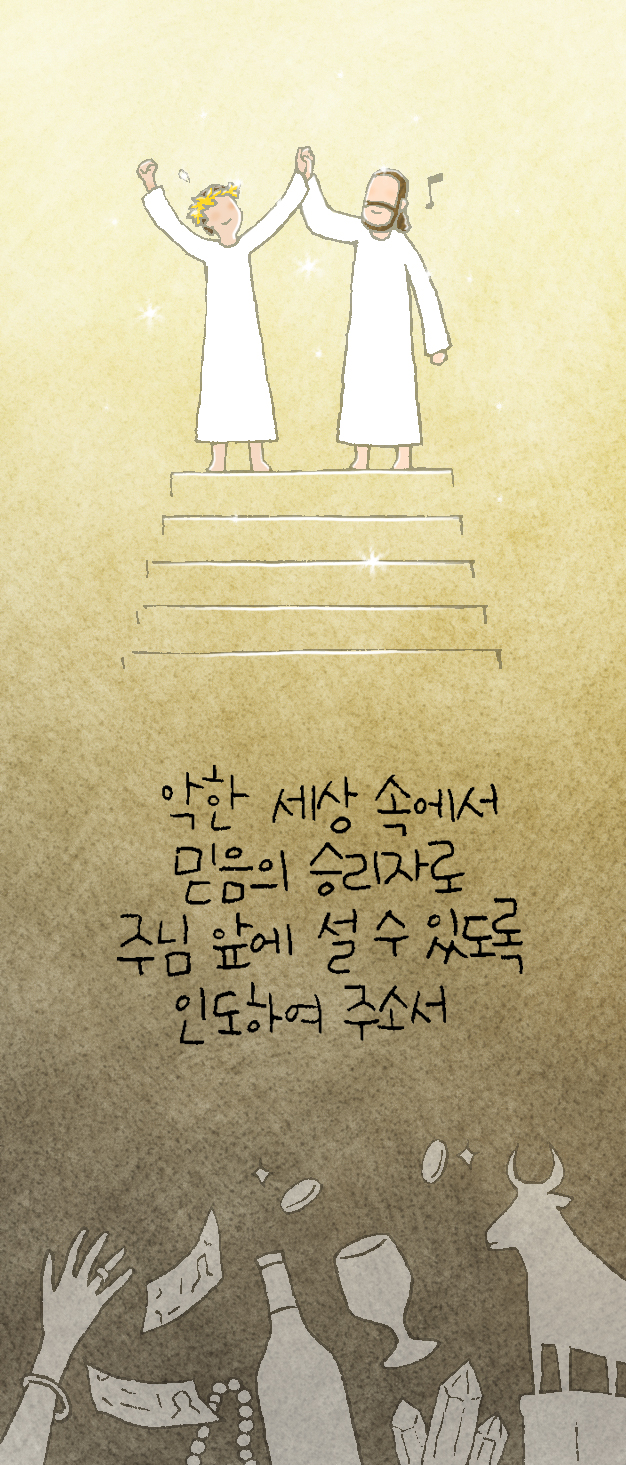 악한 세상 속에서
믿음의 승리자로
주님 앞에 설 수 있도록
인도하여 주소서